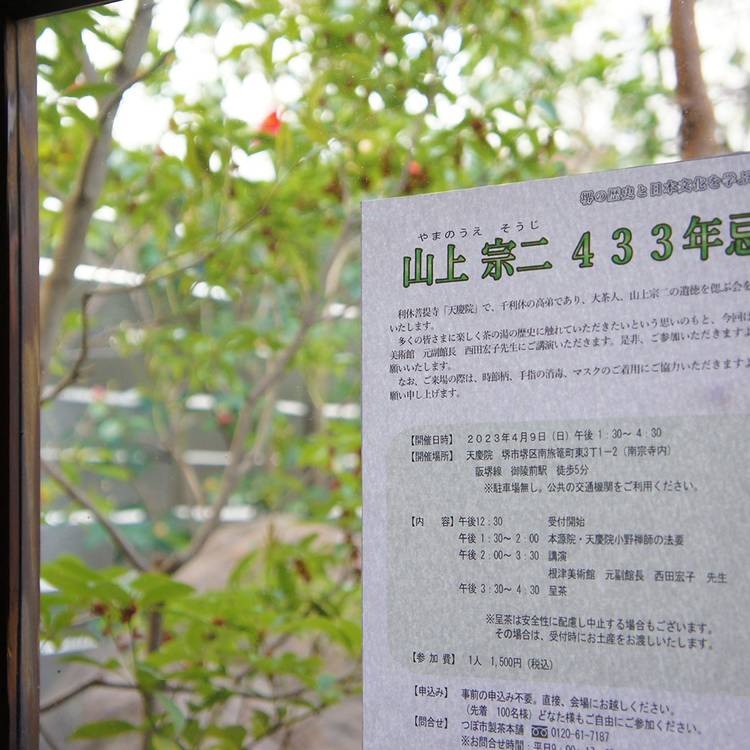 堺の歴史と日本文化を学ぶ
やまのうえ そうじ
山上 宗二 433年忌
利休菩提寺「天慶院」で、千利休の高弟であり、大茶人、山上宗二の遺徳を偲ぶ会を
いたします。
多くの皆さまに楽しく茶の湯の歴史に触れていただきたいという思いのもと、今回は
美術館 元副館長 西田宏子先生にご講演いただきます。是非、ご参加いただきますよ
願いいたします。
なお、ご来場の際は、時節柄、手指の消毒、マスクのご着用にご協力いただきますよ
願い申し上げます。
【開催日時】 2023年4月9日（日）午後 1:30～ 4:30
【開催場所】 天慶院 堺市堺区南旅篭町東3丁1−2（南宗寺内）
阪堺線 御陵前駅 徒歩5分
※駐車場無し。公共の交通機関をご利用ください。
【内 容】 午後12:30 受付開始
午後 1:30～ 2:00 本源院・天慶院小野禅師の法要
午後 2:00～ 3:30 講演
根津美術館 元副館長 西田宏子 先生
午後 3:30～ 4:30 呈茶
※呈茶は安全性に配慮し中止する場合もございます。
その場合は、受付時にお土産をお渡しいたします。
【参 加 費】 1人 1,500円（税込）
【申込み】 事前の申込み不要。直接、会場にお越しください。
（先着 100名様）どなた様もご自由にご参加ください。
【問合せ】 つぼ市製茶本舗 0120-61-7187
※お問合せ時間：平日9:00